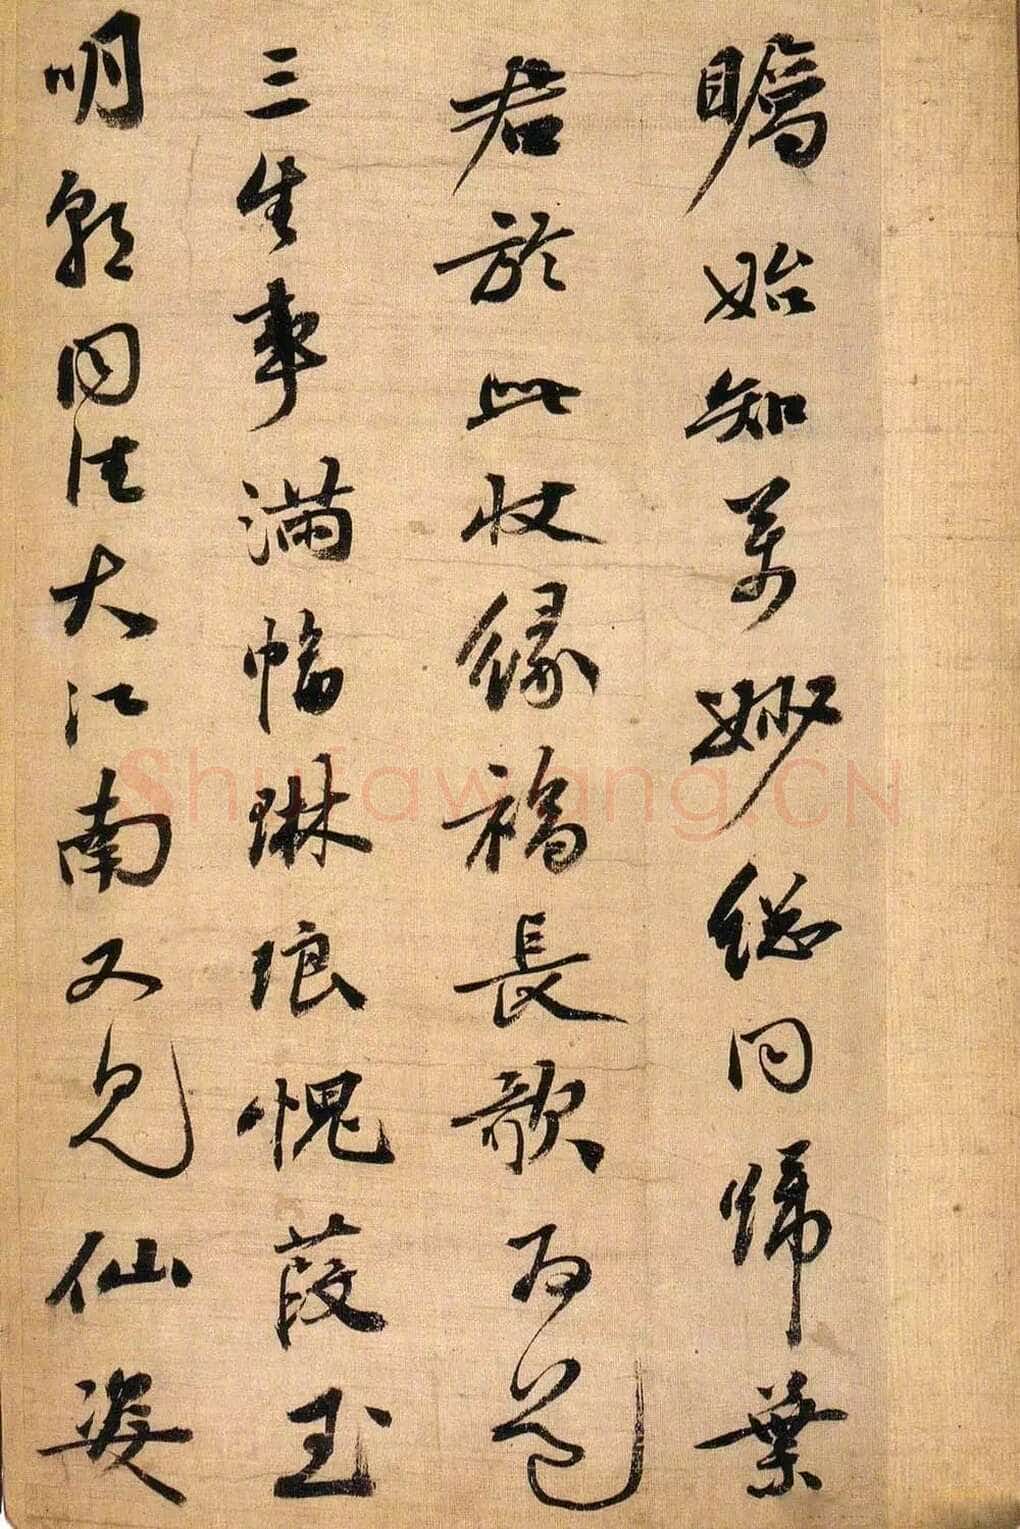 矚始知萬妙総同歸葉
君於此收緣福長歌为
三生事滿幅琳琅愧葭玉
明朝大江南又見仙姿
Shufawang.CN